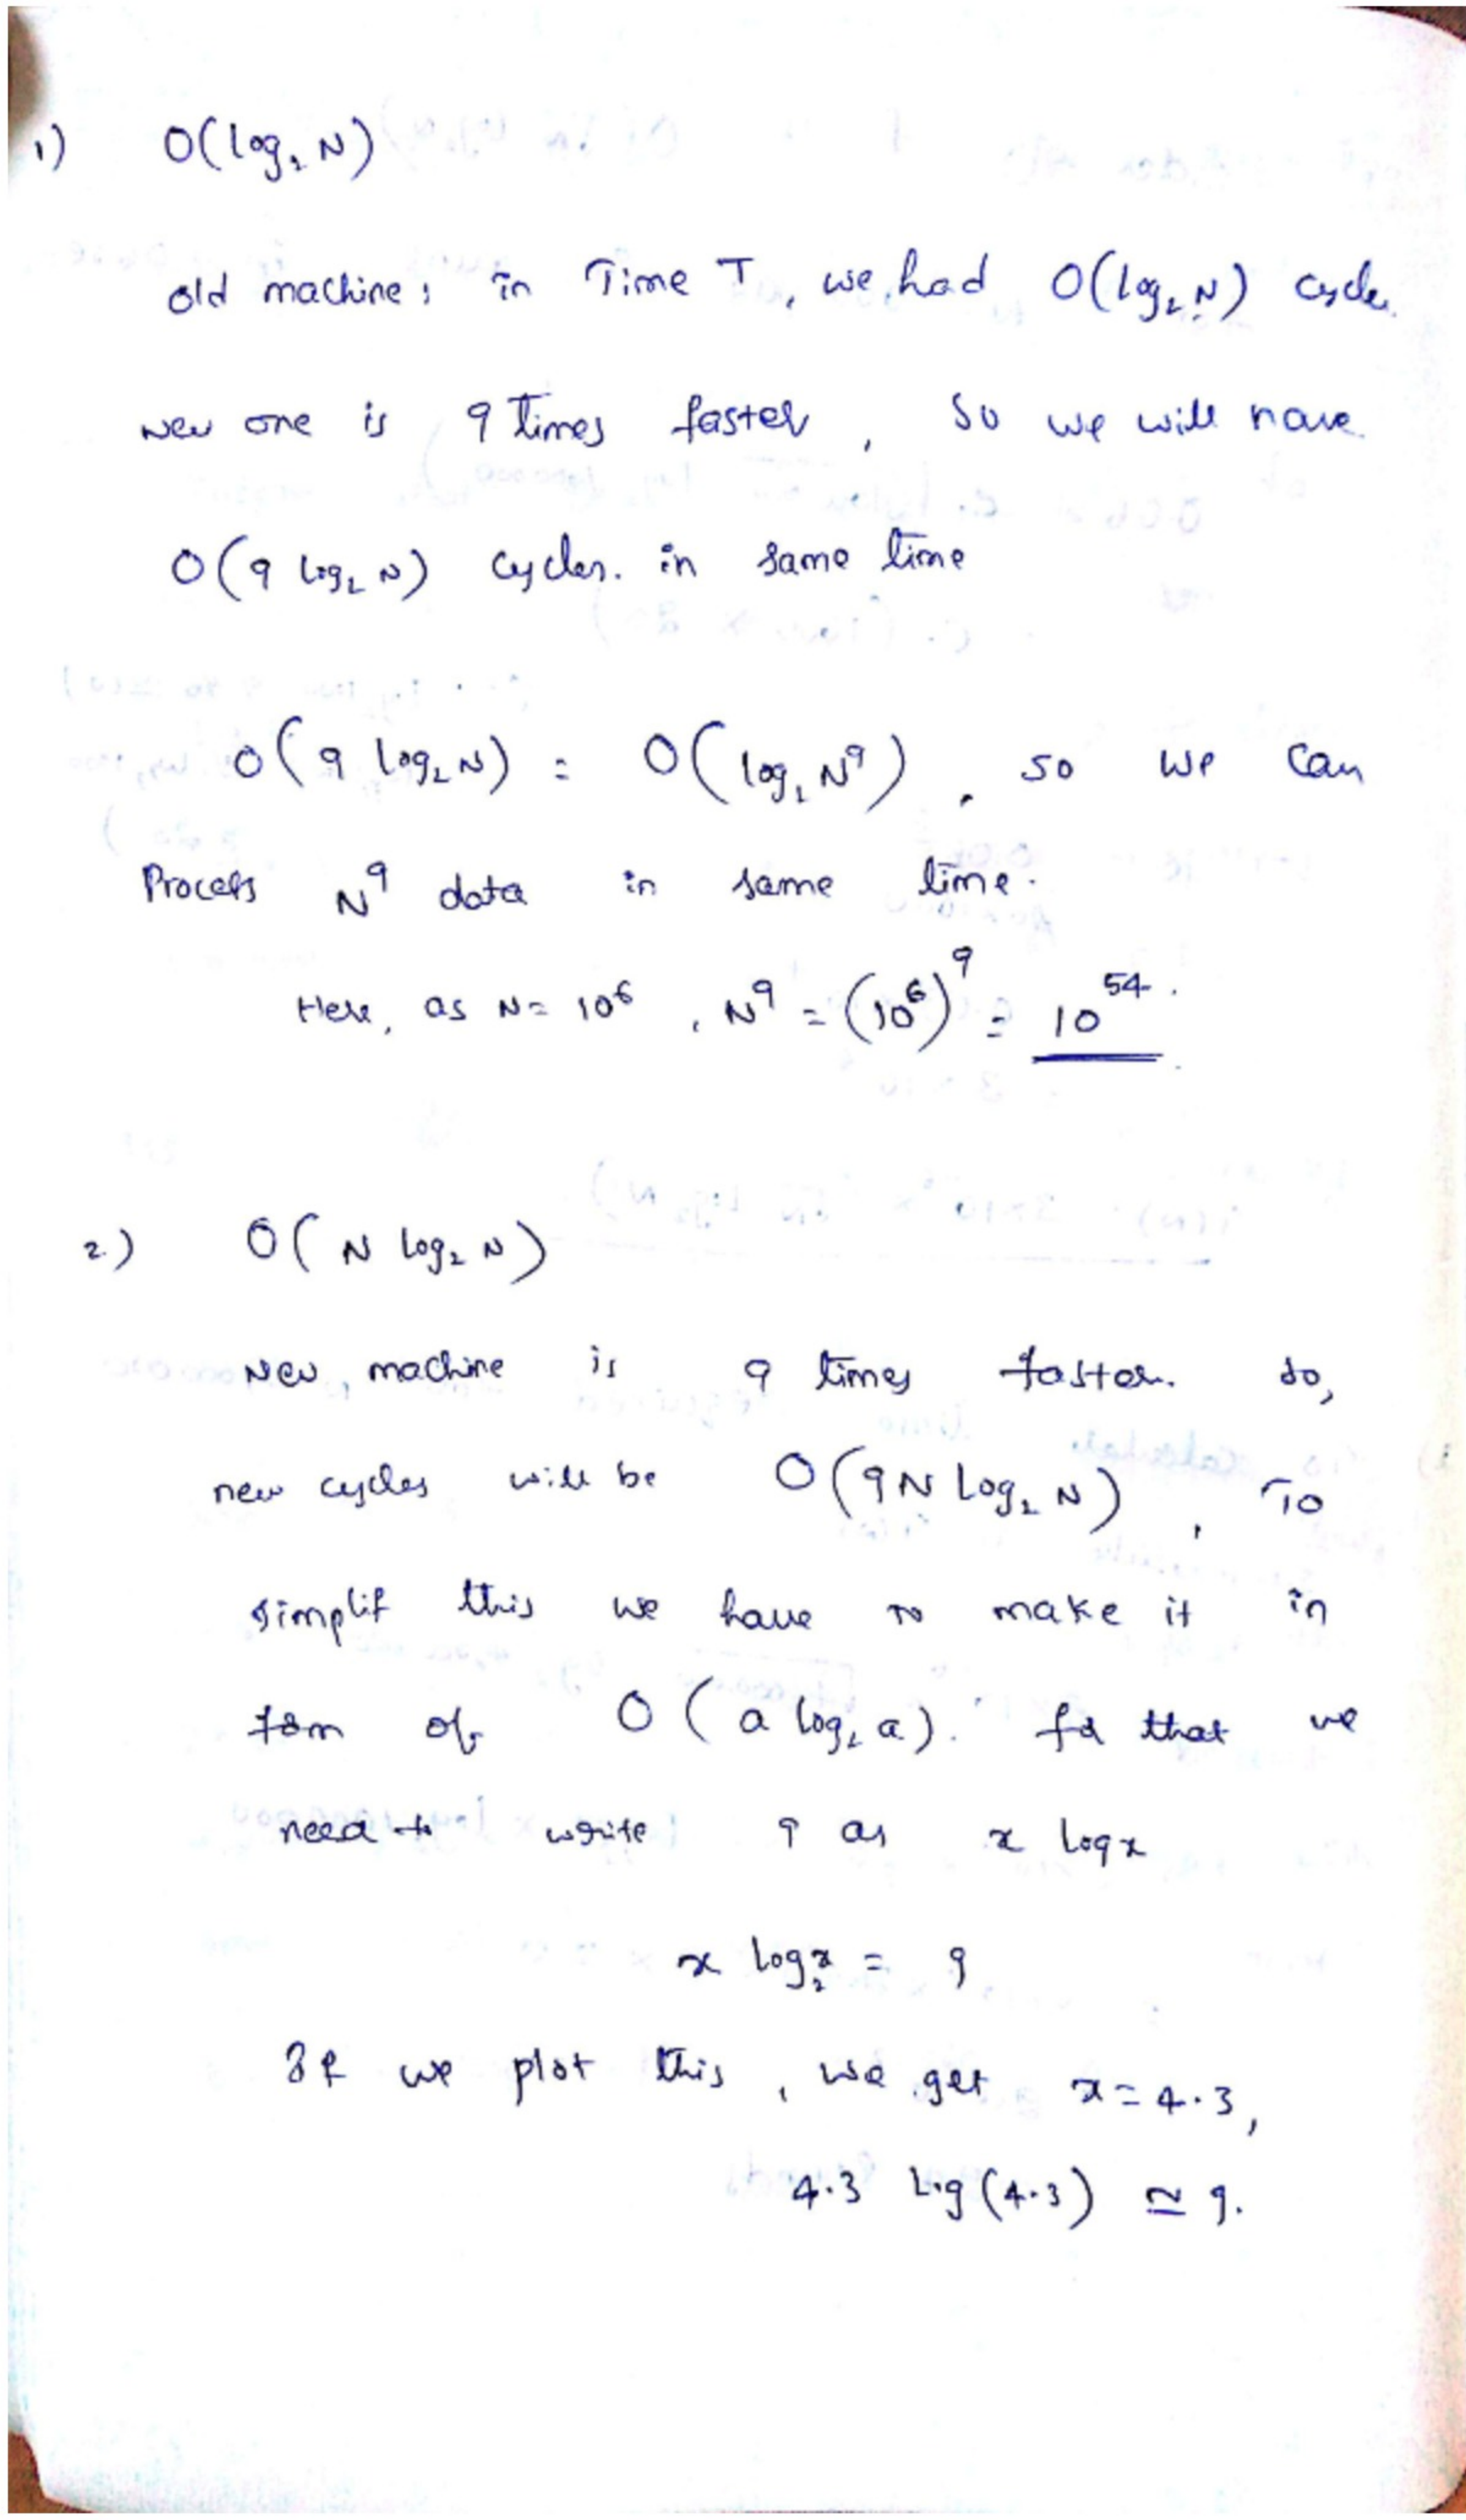 1) O(log₂ N)
old machine: in Time T, we had O(log₂ N) cycles.
New one is 9 times faster, So we will have
O(9 log₂ N) cycles. in same time
O(9 log₂ N) = O(log₂ N⁹), so we can
Process N⁹ data in same time.
Here, as N = 10⁶, N⁹ = (10⁶)⁹ = 10⁵⁴.
2.) O(N log₂ N)
New machine is 9 times faster. so,
new cycles will be O(9N log₂ N), To
simplif this we have to make it in
form of O(a log₂ a). for that we
need to write 9 as x log x
x log₂ x = 9
If we plot this, we get x = 4.3,
4.3 log(4.3) ≃ 9.